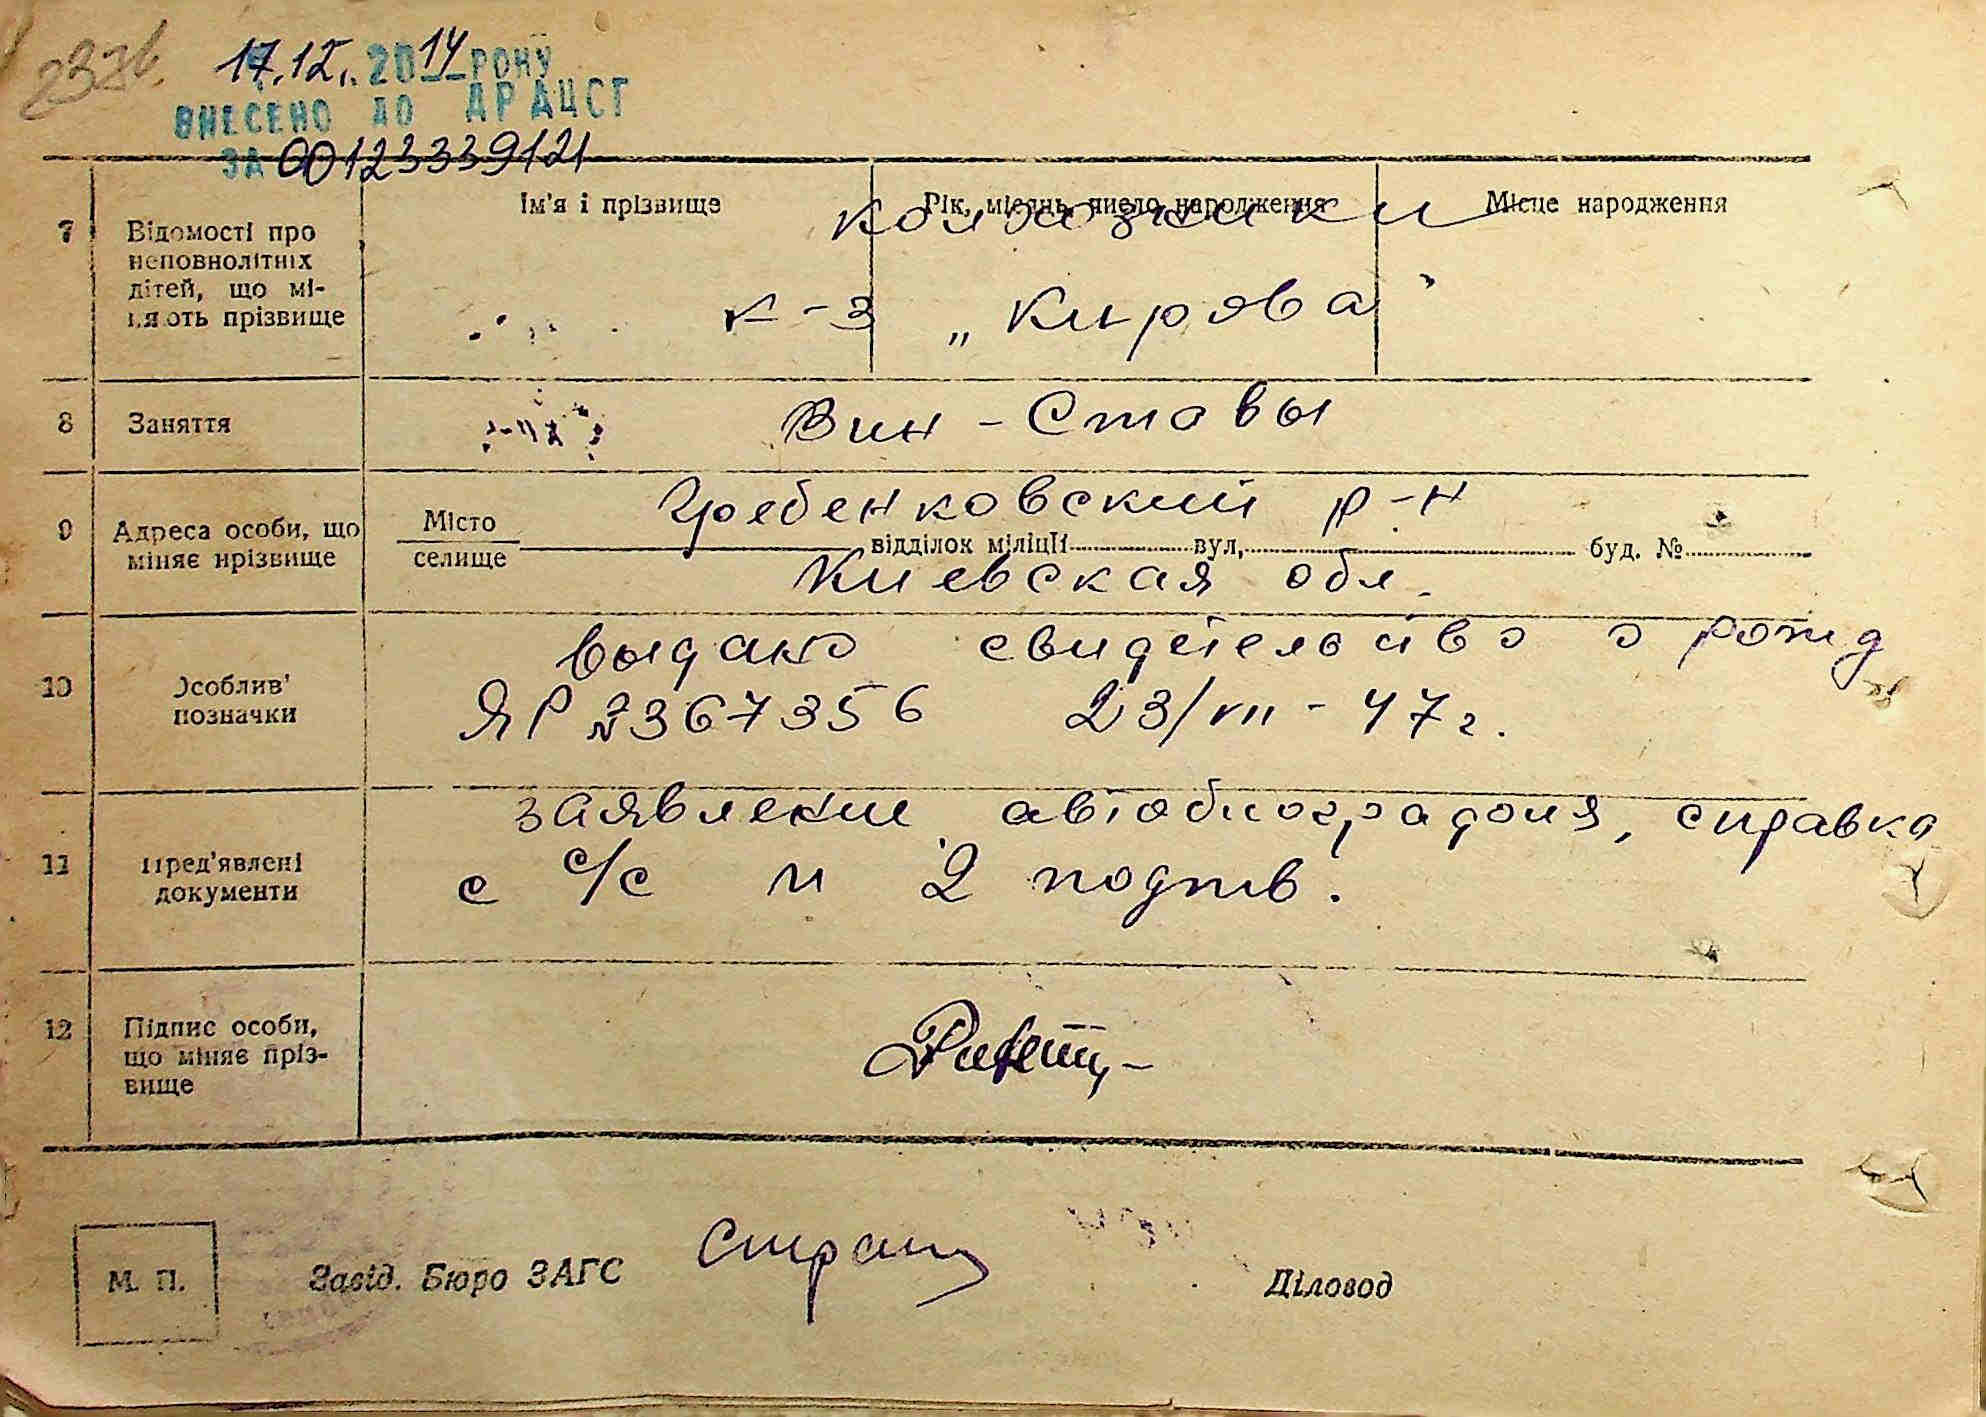 17.12. 2014 РОКУ
ВНЕСЕНО ДО ДРАЦСГ
ЗА 00123339121
Ім'я і прізвище
Рік, місяць, число народження
Місце народження
колхозники
7
Відомості про
неповнолітніх
дітей, що мі-
няють прізвище
к-з „Кирова"
8
Заняття
Вин-Ставы
9
Адреса особи, що
міняє прізвище
Гребенковский р-н
Місто
селище
відділок міліції
вул.
буд. №
Киевская обл.
10
Особливі
позначки
выдано свидетельство о рожд
ЯР № 367356 23/VII-47 г.
11
Пред'явлені
документи
заявление, автобиография, справка
с с/с и 2 подтв.
12
Підпис особи,
що міняє пріз-
вище
М. П.
Завід. Бюро ЗАГС
Діловод